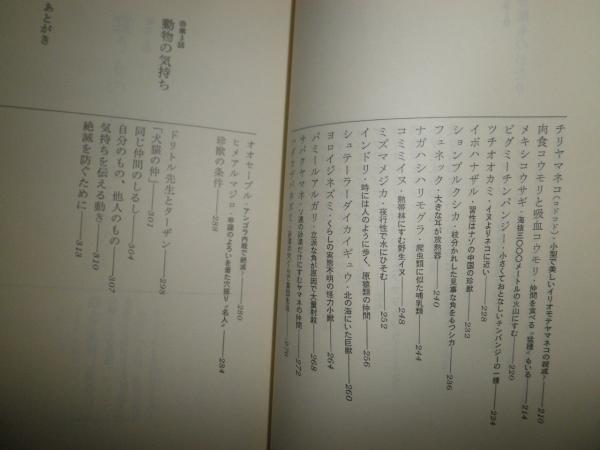 チリヤマネコ(コドコド)・小型で美しいイリオモテヤマネコの親戚——210
肉食コウモリと吸血コウモリ・仲間を食べる“猛獣”もいる——214
メキシコウサギ・海抜三〇〇〇メートルの火山にすむ——220
ピグミーチンパンジー・小さくておとなしいチンパンジーの一種——224
ツチオオカミ・イヌよりネコに近い——228
イボハナザル・習性はナゾの中国の珍獣——232
ションブルクシカ・枝分かれした見事な角をもつシカ——236
フェネック・大きな耳が放熱器——240
ナガハシハリモグラ・爬虫類に似た哺乳類——244
コミミイヌ・熱帯林にすむ野生イヌ——248
ミズマメジカ・夜行性で水にひそむ——252
インドリ・時には人のように歩く、原猿類の仲間——256
シュテーラーダイカイギュウ・北の海にいた巨獣——260
ヨロイジネズミ・くらしの実態不明の怪力小獣——264
パミールアルガリ・立派な角が原因で大量射殺——268
サバクヤマネ・ソ連の砂漠だけにすむヤマネの仲間——272
276
オオセーブル・アンゴラ内戦で絶滅?——280
ヒメアルマジロ・甲羅のよろいを着た穴掘り“名人”——284
珍獣の条件——289
第3話
動物の気持ち
ドリトル先生とターザン——298
「犬猿の仲」——301
同じ仲間のしるし——304
自分のもの、他人のもの——307
気持ちを伝える動き——310
絶滅を防ぐために——313
あとがき